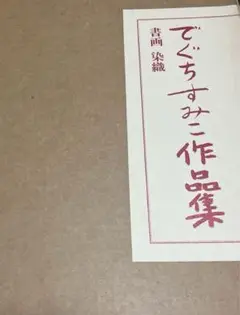 でぐちすみこ作品集
書画 染織